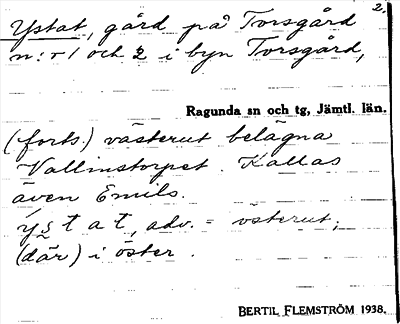 2.
Ystat, gård på Torsgård
n:r 1 och 2 i byn Torsgård,
Ragunda sn och tg, Jämtl. län.
(forts.) västerut belägna
Vallinstorpet. Kallas
även Emils.
ýs̰tat, adv. = österut;
(där) i öster.
BERTIL FLEMSTRÖM 1938.